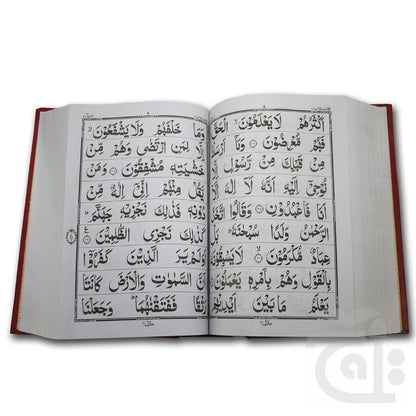 اَكْثَرُهُمْ لَا يَعْلَمُوْنَ ۙ الْحَقَّ
فَهُمْ مُّعْرِضُوْنَ ۝ وَمَآ اَرْسَلْنَا
مِنْ قَبْلِكَ مِنْ رَّسُوْلٍ اِلَّا
نُوْحِيْٓ اِلَيْهِ اَنَّهٗ لَآ اِلٰهَ اِلَّآ
اَنَا فَاعْبُدُوْنِ ۝ وَقَالُوا اتَّخَذَ
الرَّحْمٰنُ وَلَدًا سُبْحٰنَهٗ ؕ بَلْ
عِبَادٌ مُّكْرَمُوْنَ ۝ لَا يَسْبِقُوْنَهٗ
بِالْقَوْلِ وَهُمْ بِاَمْرِهٖ يَعْمَلُوْنَ ۝
يَعْلَمُ مَا بَيْنَ اَيْدِيْهِمْ
وَمَا خَلْفَهُمْ وَلَا يَشْفَعُوْنَ ۙ اِلَّا
لِمَنِ ارْتَضٰى وَهُمْ مِّنْ
خَشْيَتِهٖ مُشْفِقُوْنَ ۝ وَمَنْ
يَّقُلْ مِنْهُمْ اِنِّيْٓ اِلٰهٌ مِّنْ
دُوْنِهٖ فَذٰلِكَ نَجْزِيْهِ جَهَنَّمَ ؕ
كَذٰلِكَ نَجْزِي الظّٰلِمِيْنَ ۝
اَوَلَمْ يَرَ الَّذِيْنَ كَفَرُوْٓا
اَنَّ السَّمٰوٰتِ وَالْاَرْضَ كَانَتَا
رَتْقًا فَفَتَقْنٰهُمَا ؕ وَجَعَلْنَا